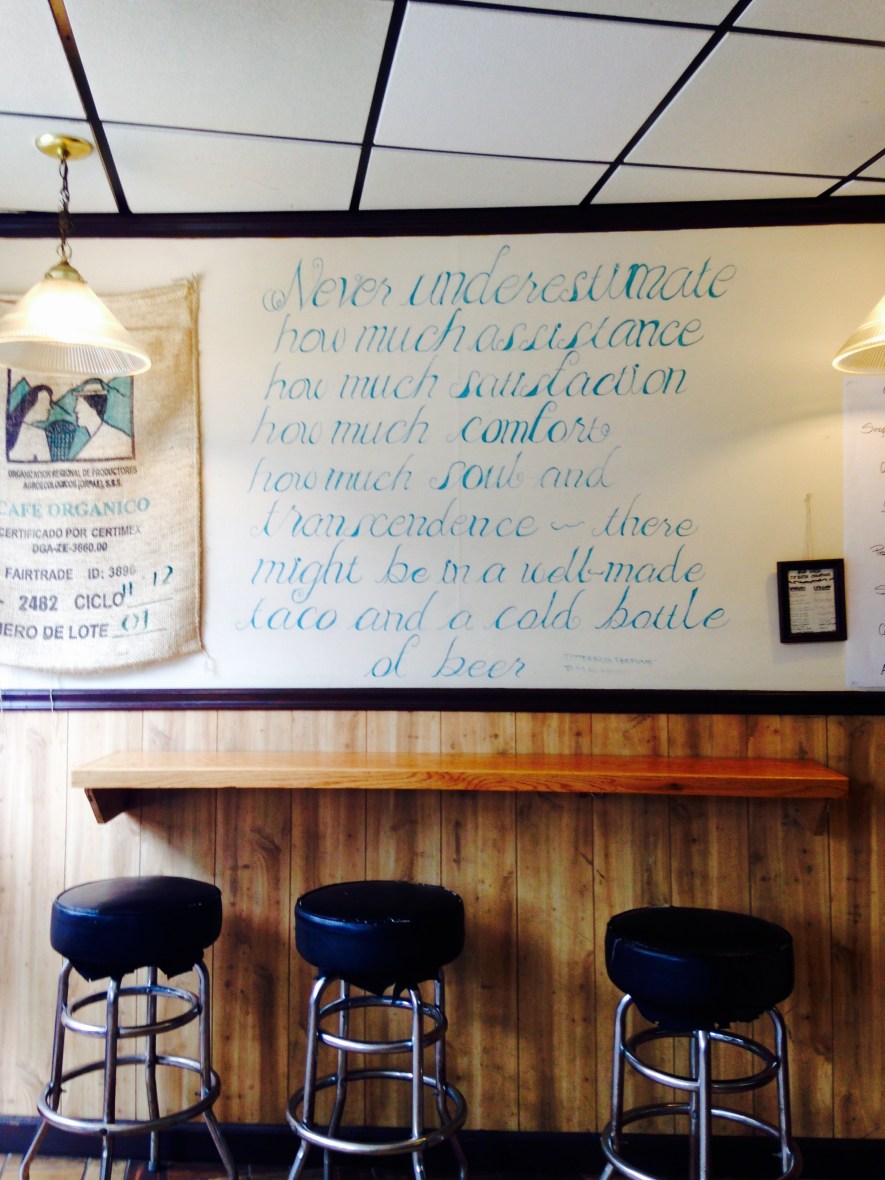 Never underestimate
how much assistance
how much satisfaction
how much comfort
how much soul and
transcendence ~ there
might be in a well-made
taco and a cold bottle
of beer
ORGANIZACION REGIONAL DE PRODUCTORES
AGROECOLOGICOS (ORPAE), S.S.S.
CAFE ORGANICO
CERTIFICADO POR CERTIMEX
DGA-ZE-3660.00
FAIRTRADE ID: 3890
2482 CICLO 11-12
MERO DE LOTE 01